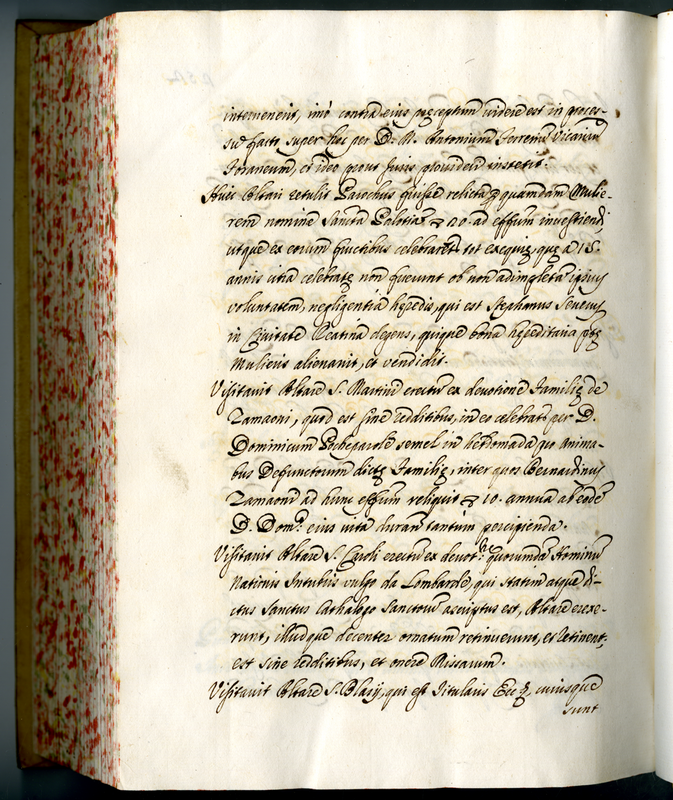 intervenerit, imò contra eius præceptum videre est in proces-
su facto super hoc per D. M. Antonium Ferrenũ Vicariũ
foraneum, et ideo prout Iuris provideri institit.
Huic Altari retulit Parochus fuisse relicta quamdam Mulie-
rem nomine Sancta Δ 20. ad effũm investiendi,
utque ex eorum fructibus celebrarẽt tot exequiæ, quæ a 15.
annis citra celebratæ non fuerunt ob non adimpletã ipsius
voluntatem, negligentiã hęredis, qui est Stephanus Severus
in Civitate Reatina degens, quique bona hęreditaria ptæ
Mulieris alienavit, et vendidit.
Visitavit Altare S. Martini erectũ ex devotione Familię de
Zamaoni, quod est sine redditibus, in eo celebratr per D.
Dominicum semel in hebdomada pro Anima-
bus Defunctorum dictę Familię, inter quos Bernardinus
Zamaoni ad hunc effũm reliquit Δ 10. annua ab eodẽ
D. Domco eius vita durañ tantum percipienda.
Visitavit Altare S. Caroli erectũ ex devotne quorumdã Hominũ
Nationis Insubris vulgo da Lombardo, qui statim atque di-
ctus Sanctus Cathalogo Sanctorũ ascriptus est, Altare erexe-
runt, illudque decenter ornatum retinuerunt, et retinent,
est sine redditibus, et onere Missarum.
Visitavit Altare S. Blasij, qui est Titularis Eccę, cuiusque
sunt